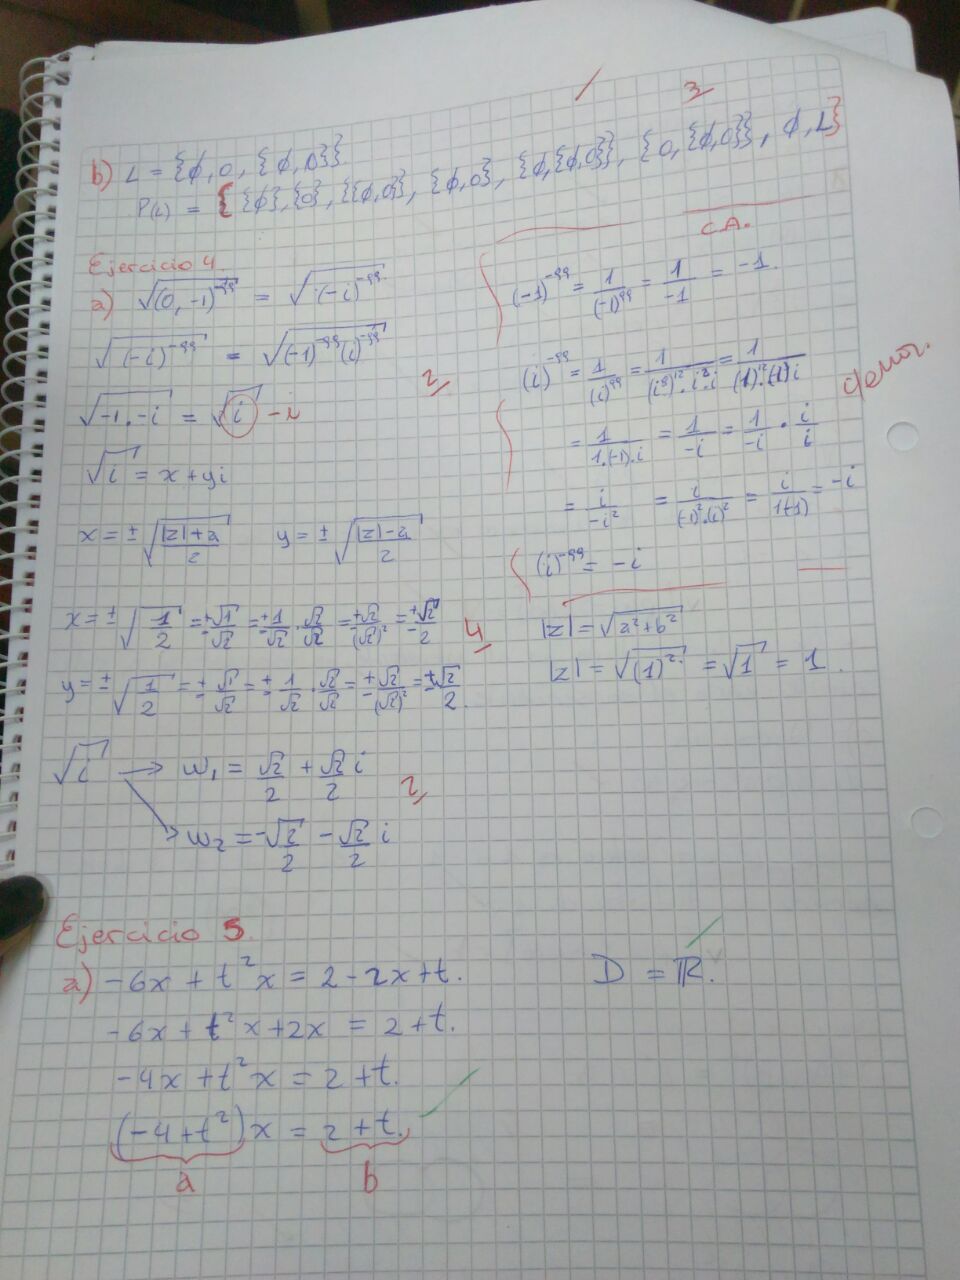 3
b) L = {ϕ, 0, {ϕ, 0}}
P(L) = { {ϕ}, {0}, {{ϕ,0}}, {ϕ,0}, {ϕ,{ϕ,0}}, {0,{ϕ,0}}, ϕ, L}
C.A.
Ejercicio 4
a) √(0, -1)^-99 = √(-i)^-99
√(-i)^-99 = √(-1)^-99 (i)^-99
2
√-1 . -i = √i -i
√i = x + yi
x = ± √|z|+a/2 y = ± √|z|-a/2
x = ± √1/2 = ±√1/√2 = ±1/√2 . √2/√2 = ±√2/(√2)² = ±√2/2
4
y = ± √1/2 = ± √1/√2 = ± 1/√2 . √2/√2 = ± √2/(√2)² = ±√2/2.
√i → w₁ = √2/2 + √2/2 i
2
→ w₂ = -√2/2 - √2/2 i
(-1)^-99 = 1/(-1)^99 = 1/-1 = -1.
(i)^-99 = 1/(i)^99 = 1/(i⁸)^12 . i² . i =
= 1/1.(-1).i = 1/-i = 1/-i . i/i
= i/-i² = i/(-1)².(i)² = i/1(-1) = -i
(i)^-99 = -i
|z| = √a²+b²
|z| = √(1)² = √1 = 1.
Ejercicio 5.
a) -6x + t²x = 2 - 2x + t. D = ℝ.
-6x + t²x + 2x = 2 + t.
-4x + t²x = 2 + t.
(-4 + t²)x = 2 + t.
a b